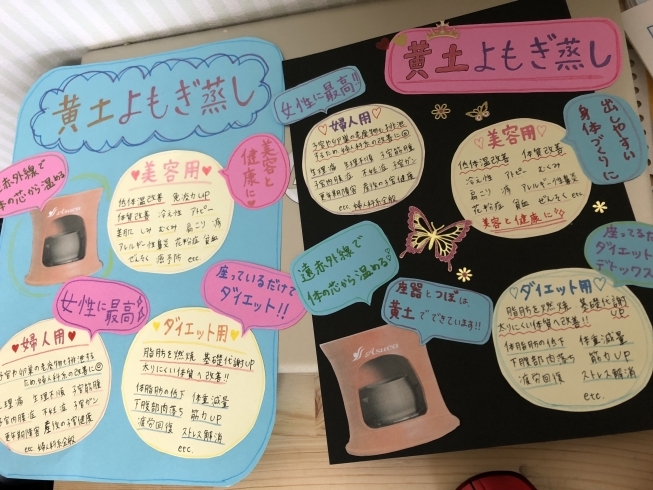 黄土よもぎ蒸し
遠赤外線で
体の芯から温める
美容と
健康に♡
♥美容用♥
低体温改善 免疫力UP
体質改善 冷え性 アトピー
美肌 しみ むくみ 肩こり 痛
アレルギー性鼻炎 花粉症 貧血
ぜんそく etc.
女性に最高
座っているだけで
ダイエット!!
♥婦人用♥
生理痛 生理不順 子宮筋腫
子宮内膜症 不妊症 子宮ガン
更年期障害 産後の子宮健康
etc. 婦人科系全般
♥ダイエット用♥
脂肪を燃焼 基礎代謝UP
太りにくい体質へ改善!!
体脂肪の低下 体重減量
下腹部肉落ち 筋力UP
疲労回復 ストレス解消
etc.
黄土よもぎ蒸し
女性に最高!!
♡婦人用♡
生理痛 生理不順 子宮筋腫
子宮内膜症 不妊症 子宮ガン
更年期障害 産後の子宮健康
etc. 婦人科系全般
♡美容用♡
低体温改善 体質改善
冷え性 むくみ アトピー
肩こり 痛 アレルギー性鼻炎
花粉症 貧血 ぜんそく etc.
美容と健康に♡
出しやすい
身体づくりに
遠赤外線で
体の芯から温める♡
座器とつぼは
黄土でできています!!
座ってるだけ
ダイエット
デトックス
♡ダイエット用♡
脂肪を燃焼 基礎代謝UP
太りにくい体質へ改善!!
体脂肪の低下 体重減量
下腹部肉落ち 筋力UP
疲労回復 ストレス解消
etc.